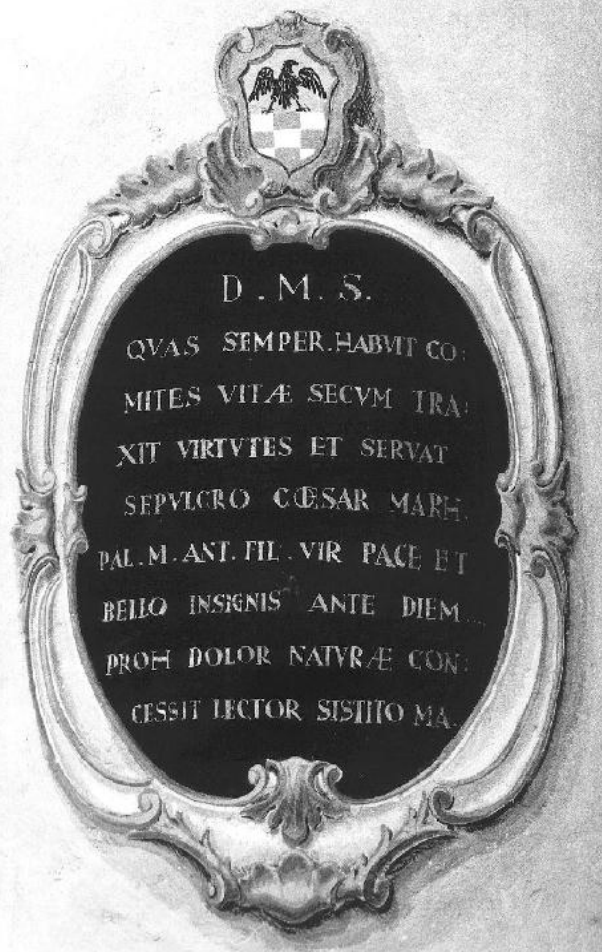 D. M. S.
QVAS SEMPER. HABVIT CO:
MITES VITÆ SECVM TRA:
XIT VIRTVTES ET SERVAT
SEPVLCRO CŒSAR MARH.
PAL. M. ANT. FIL. VIR PACE ET
BELLO INSIGNIS ANTE DIEM
PROH DOLOR NATVRÆ CON:
CESSIT LECTOR SISTITO MA.